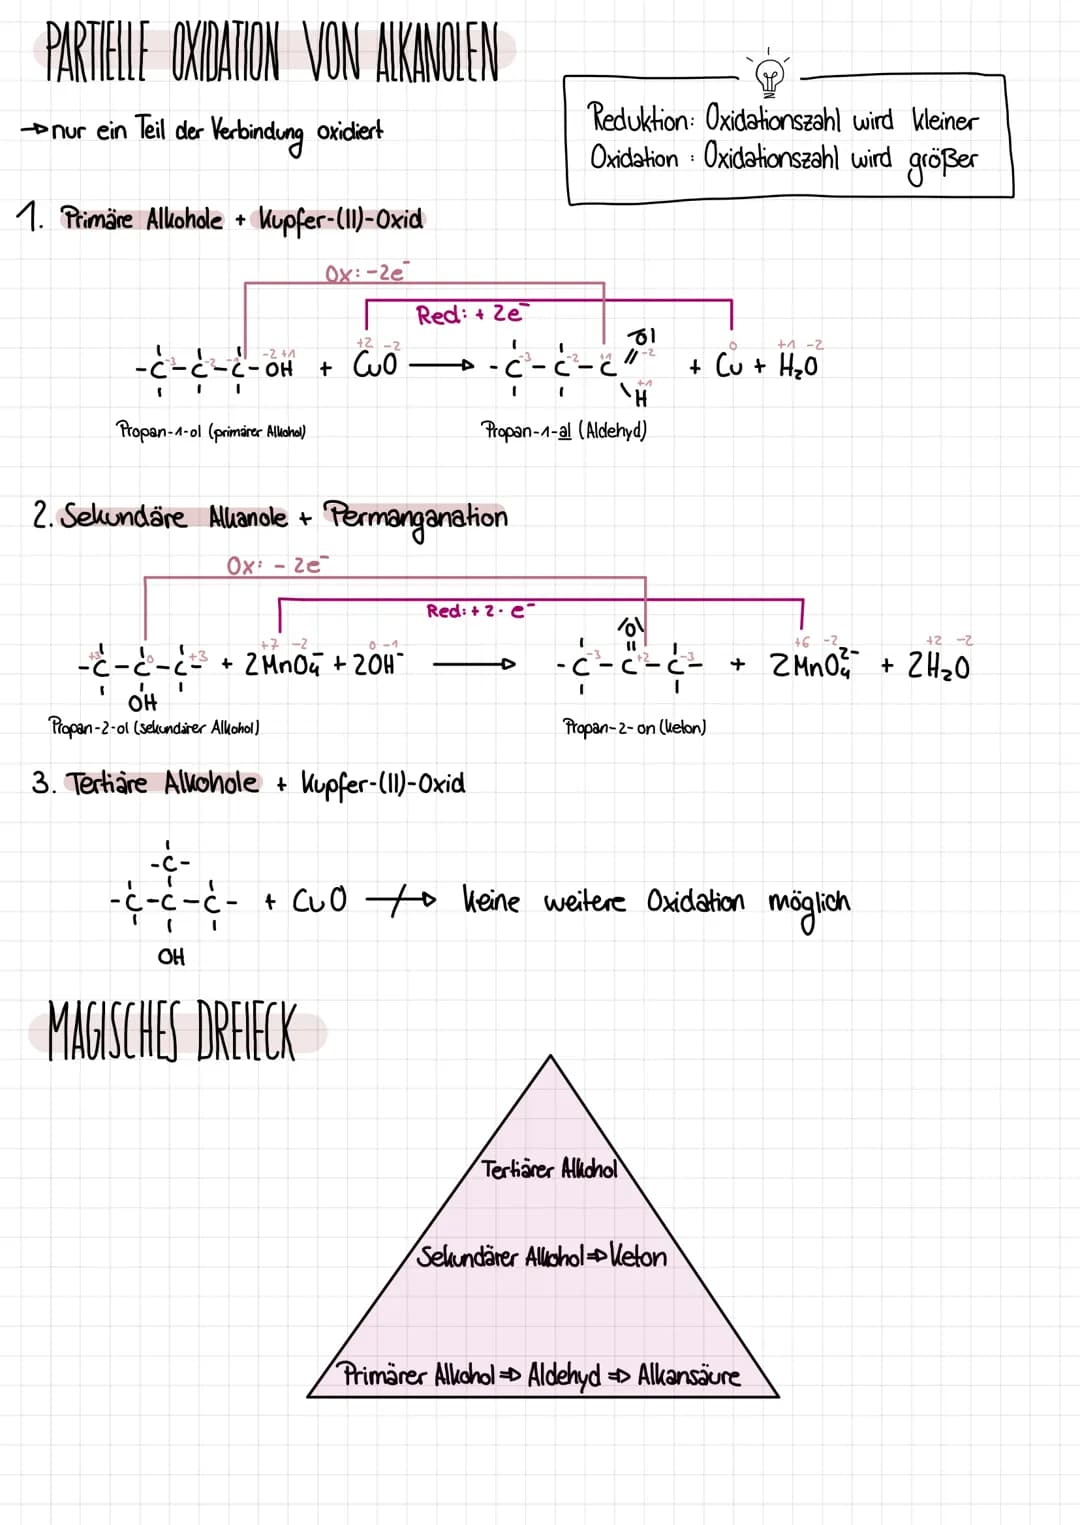 PARTIELLE OXIDATION VON ALKANOLEN
→ nur ein Teil der Verbindung oxidiert
Reduktion: Oxidationszahl wird kleiner
Oxidation : Oxidationszahl wird größer
1. Primäre Alkohole + Kupfer-(II)-Oxid
Ox: -2e⁻
Red: + 2e⁻
-2 +1 +2 -2 0 +1 -2
-C-C-C-OH + CuO → -C-C-C O H + Cu + H₂O
Propan-1-ol (primärer Alkohol) Propan-1-al (Aldehyd)
2. Sekundäre Alkanole + Permanganation
Ox: - 2e⁻
Red: + 2 · e⁻
+7 -2 0 -1 +6 -2 +2 -2
-C-C-C- + 2MnO₄⁻ + 2OH⁻ → -C-C-C- + 2MnO₄²⁻ + 2H₂O
OH
Propan-2-ol (sekundärer Alkohol) Propan-2-on (Keton)
3. Tertiäre Alkohole + Kupfer-(II)-Oxid
-C-
-C-C-C- + CuO ↛ keine weitere Oxidation möglich
OH
MAGISCHES DREIECK
Tertiärer Alkohol
Sekundärer Alkohol ⇒ Keton
Primärer Alkohol ⇒ Aldehyd ⇒ Alkansäure